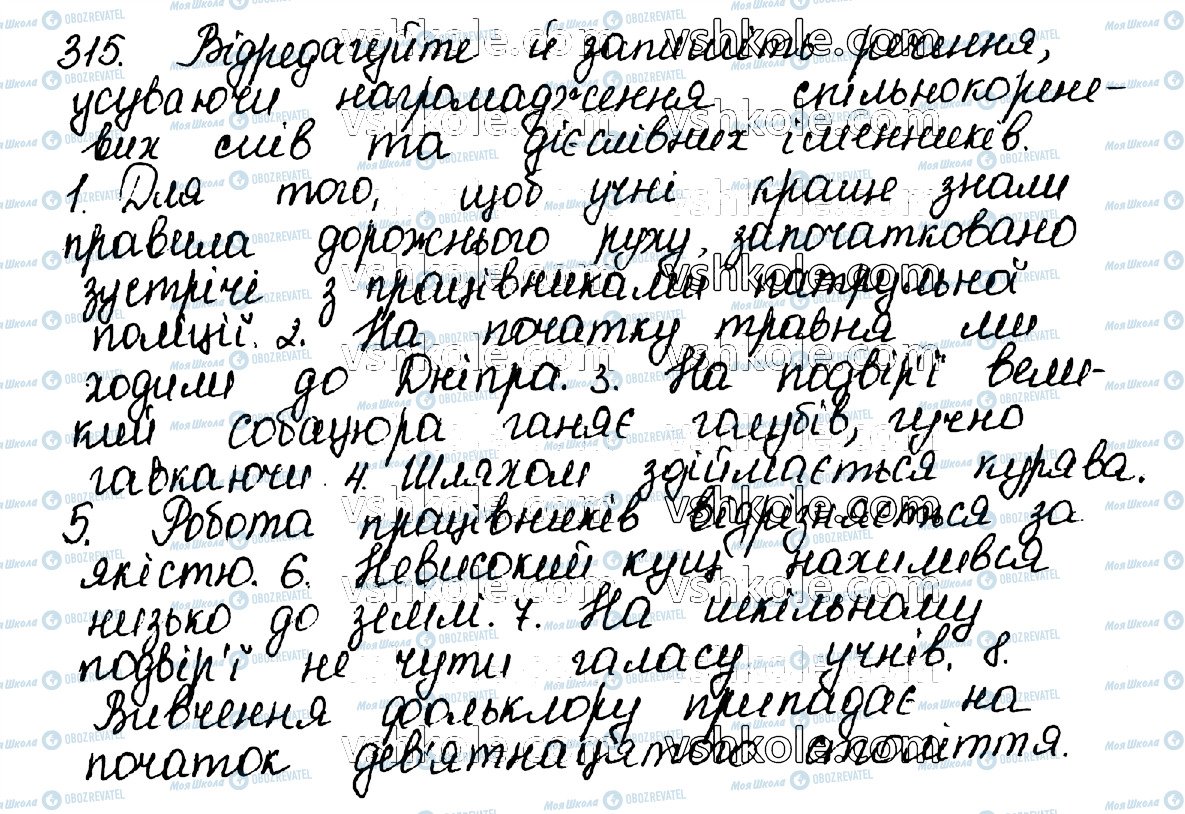 315. Відредагуйте й запишіть речення,
усуваючи нагромадження спільнокорене-
вих слів та дієслівних іменників.
1. Для того, щоб учні краще знали
правила дорожнього руху, започатковано
зустрічі з працівниками патрульної
поліції. 2. На початку травня ми
ходили до Дніпра. 3. На подвір'ї вели-
кий собацюра ганяє голубів, гучно
гавкаючи. 4. Шляхом здіймається курява.
5. Робота працівників відрізняється за
якістю. 6. Невисокий кущ нахилився
низько до землі. 7. На шкільному
подвір'ї не чути галасу учнів. 8.
Вивчення фольклору припадає на
початок дев'ятнадцятого століття.